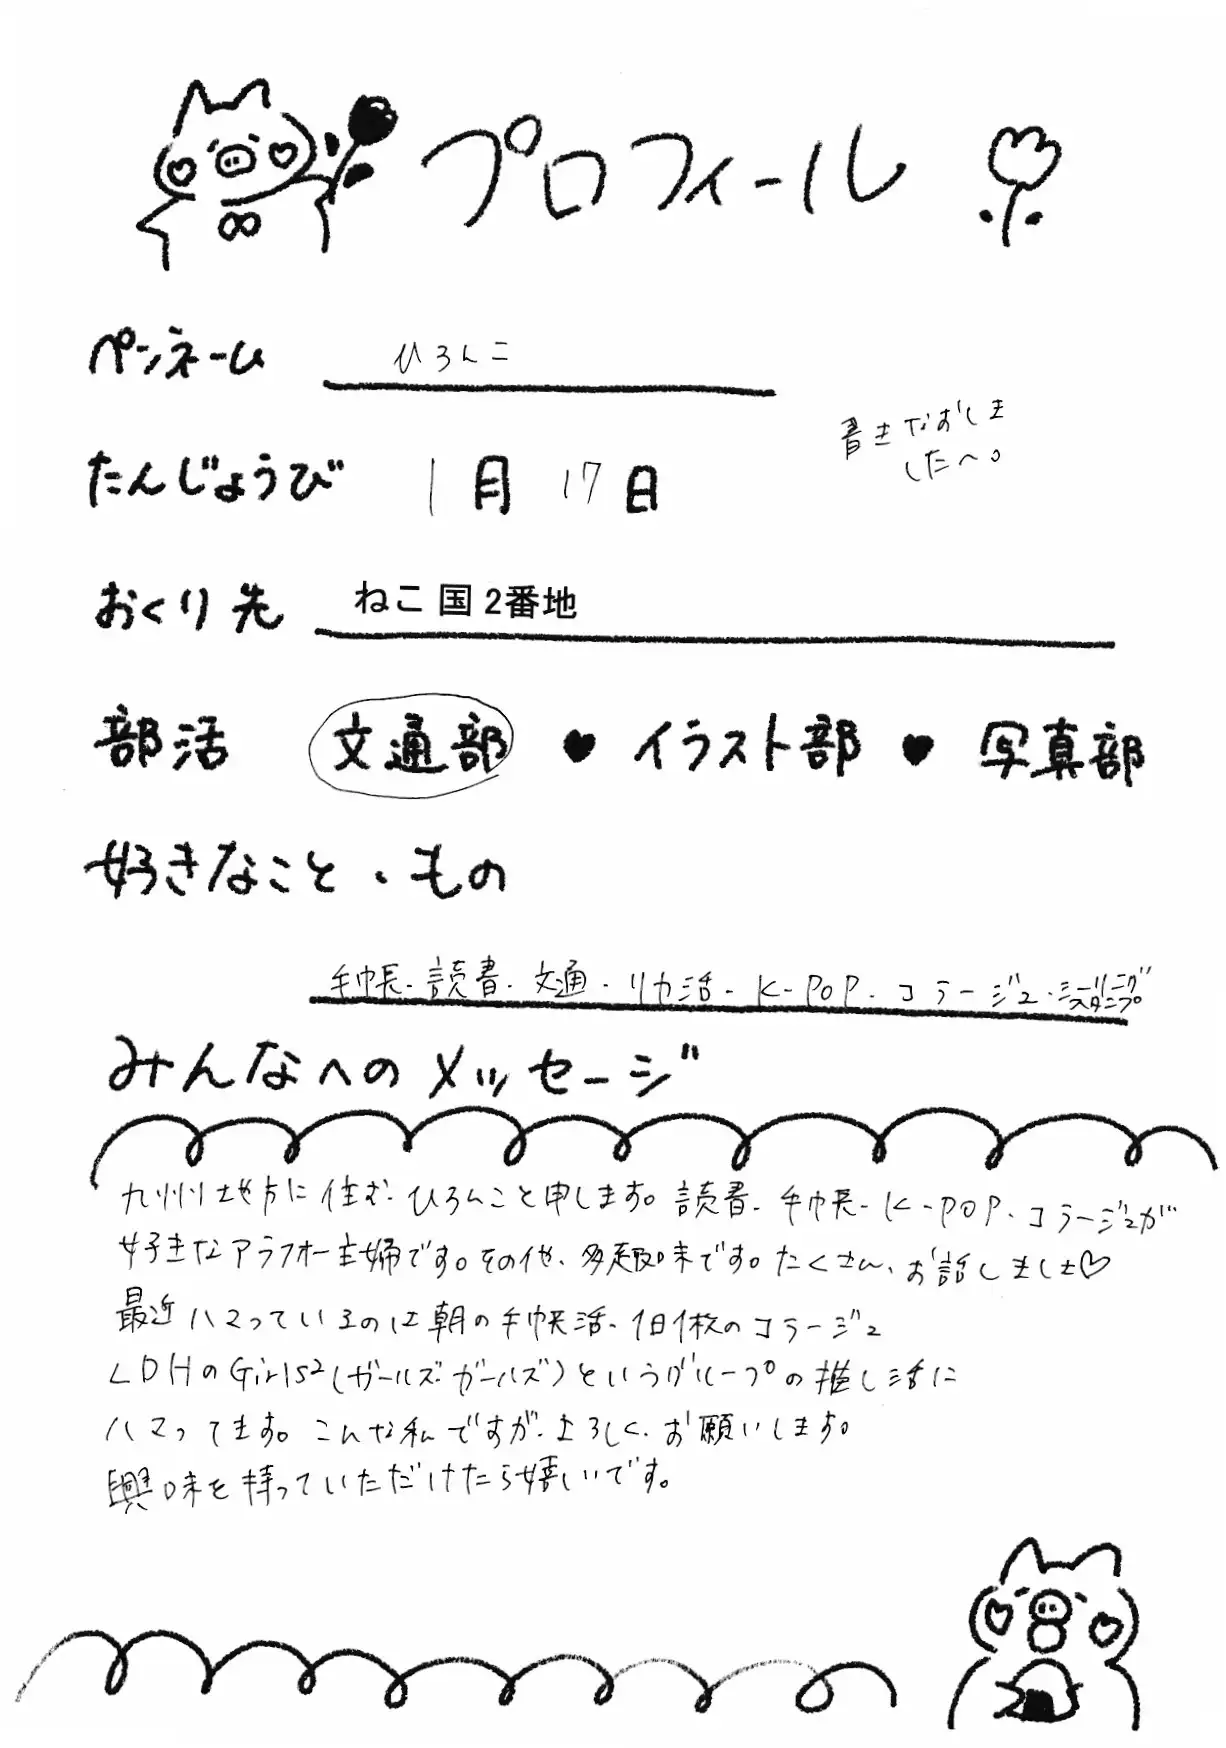 プロフィール
ペンネーム ひろんこ
書きなおしま
したへ。
たんじょうび 1月 17日
おくり先 ねこ国2番地
部活 文通部 ♥ イラスト部 ♥ 写真部
好きなこと・もの
手帳・読書・文通・リカ活・K-POP・コラージュ・シーリングスタンプ
みんなへのメッセージ
九州地方に住む、ひろんこと申します。読書・手帳・K-POP・コラージュが
好きなアラフォー主婦です。その他、多趣味です。たくさん、お話しましょ♡
最近ハマっているのは朝の手帳活、1日1枚のコラージュ
LDHのGirls²(ガールズガールズ)というグループの推し活に
ハマってます。こんな私ですが、よろしく、お願いします。
興味を持っていただけたら嬉しいです。